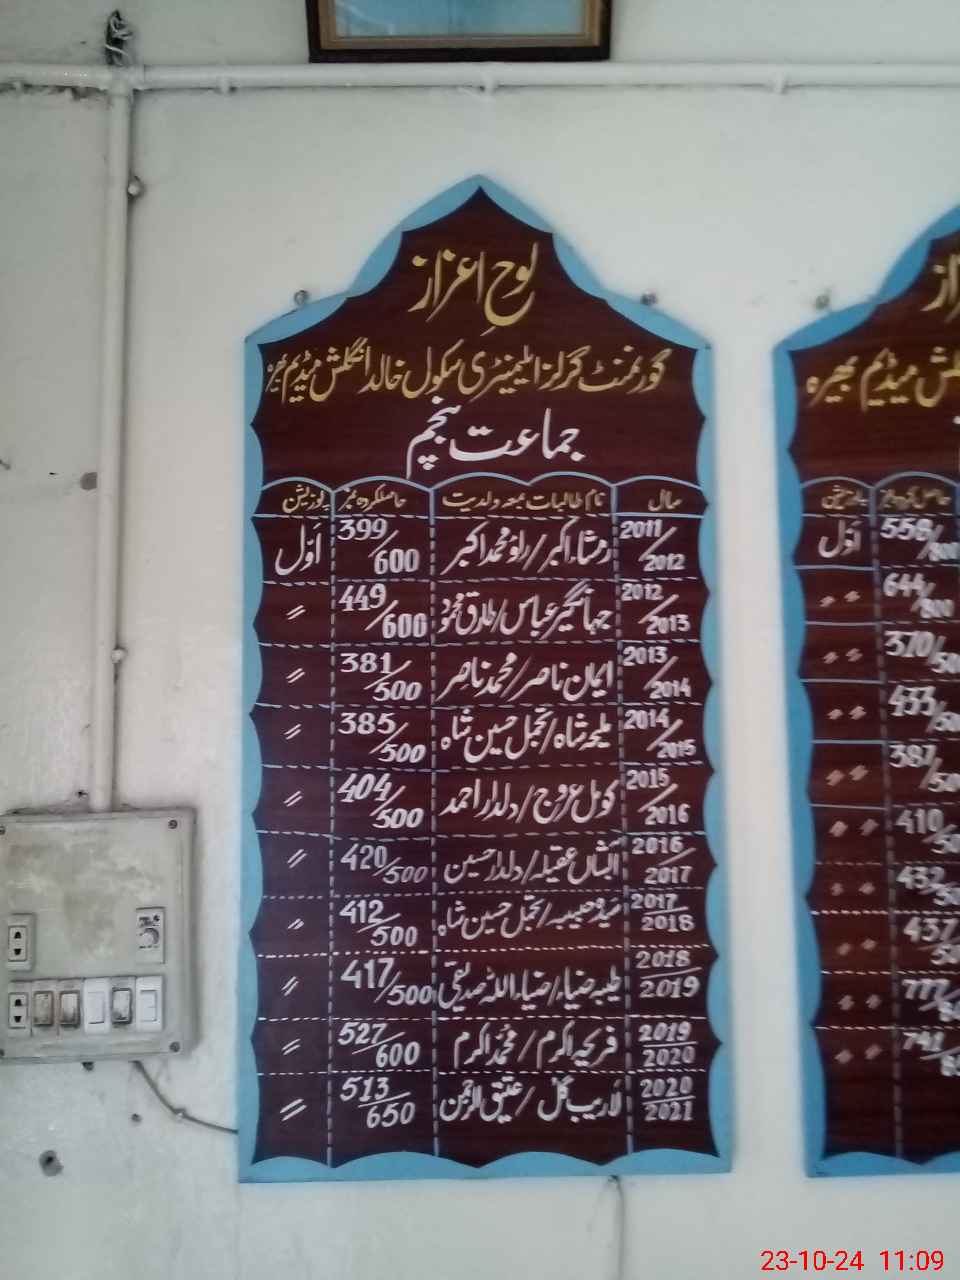 لوحِ اعزاز
گورنمنٹ گرلز ایلیمینٹری سکول خالد انگلش میڈیم بھیرہ
جماعت پنجم
سال نام طالبات بمعہ ولدیت حاصلکردہ نمبر پوزیشن
2011/2012 رمشاء اکبر/راؤ محمد اکبر 399/600 اوّل
2012/2013 جہانگیر عباس/طارق محمود 449/600 〃
2013/2014 ایمان ناصر/محمد ناصر 381/500 〃
2014/2015 ملیحہ شاہ/تجمل حسین شاہ 385/500 〃
2015/2016 کومل عروج/دلدار احمد 404/500 〃
2016/2017 عقیلہ/دلدار حسین 420/500 〃
2017/2018 سیدہ حبیبہ/تجمل حسین شاہ 412/500 〃
2018/2019 طیبہ ضیاء/ضیاء اللہ صدیقی 417/500 〃
2019/2020 فریحہ اکرم/محمد اکرم 527/600 〃
2020/2021 لاریب گل/عتیق الرحمن 513/650 〃
میڈیم بھیرہ
پوزیشن
556/800 اوّل
644/800 〃 〃
370/500 〃 〃
433/500 〃 〃
387/500 〃 〃
410/50 〃 〃
432/50 〃 〃
437/50 〃 〃
777/ 〃 〃
741/ 〃 〃
23-10-24 11:09